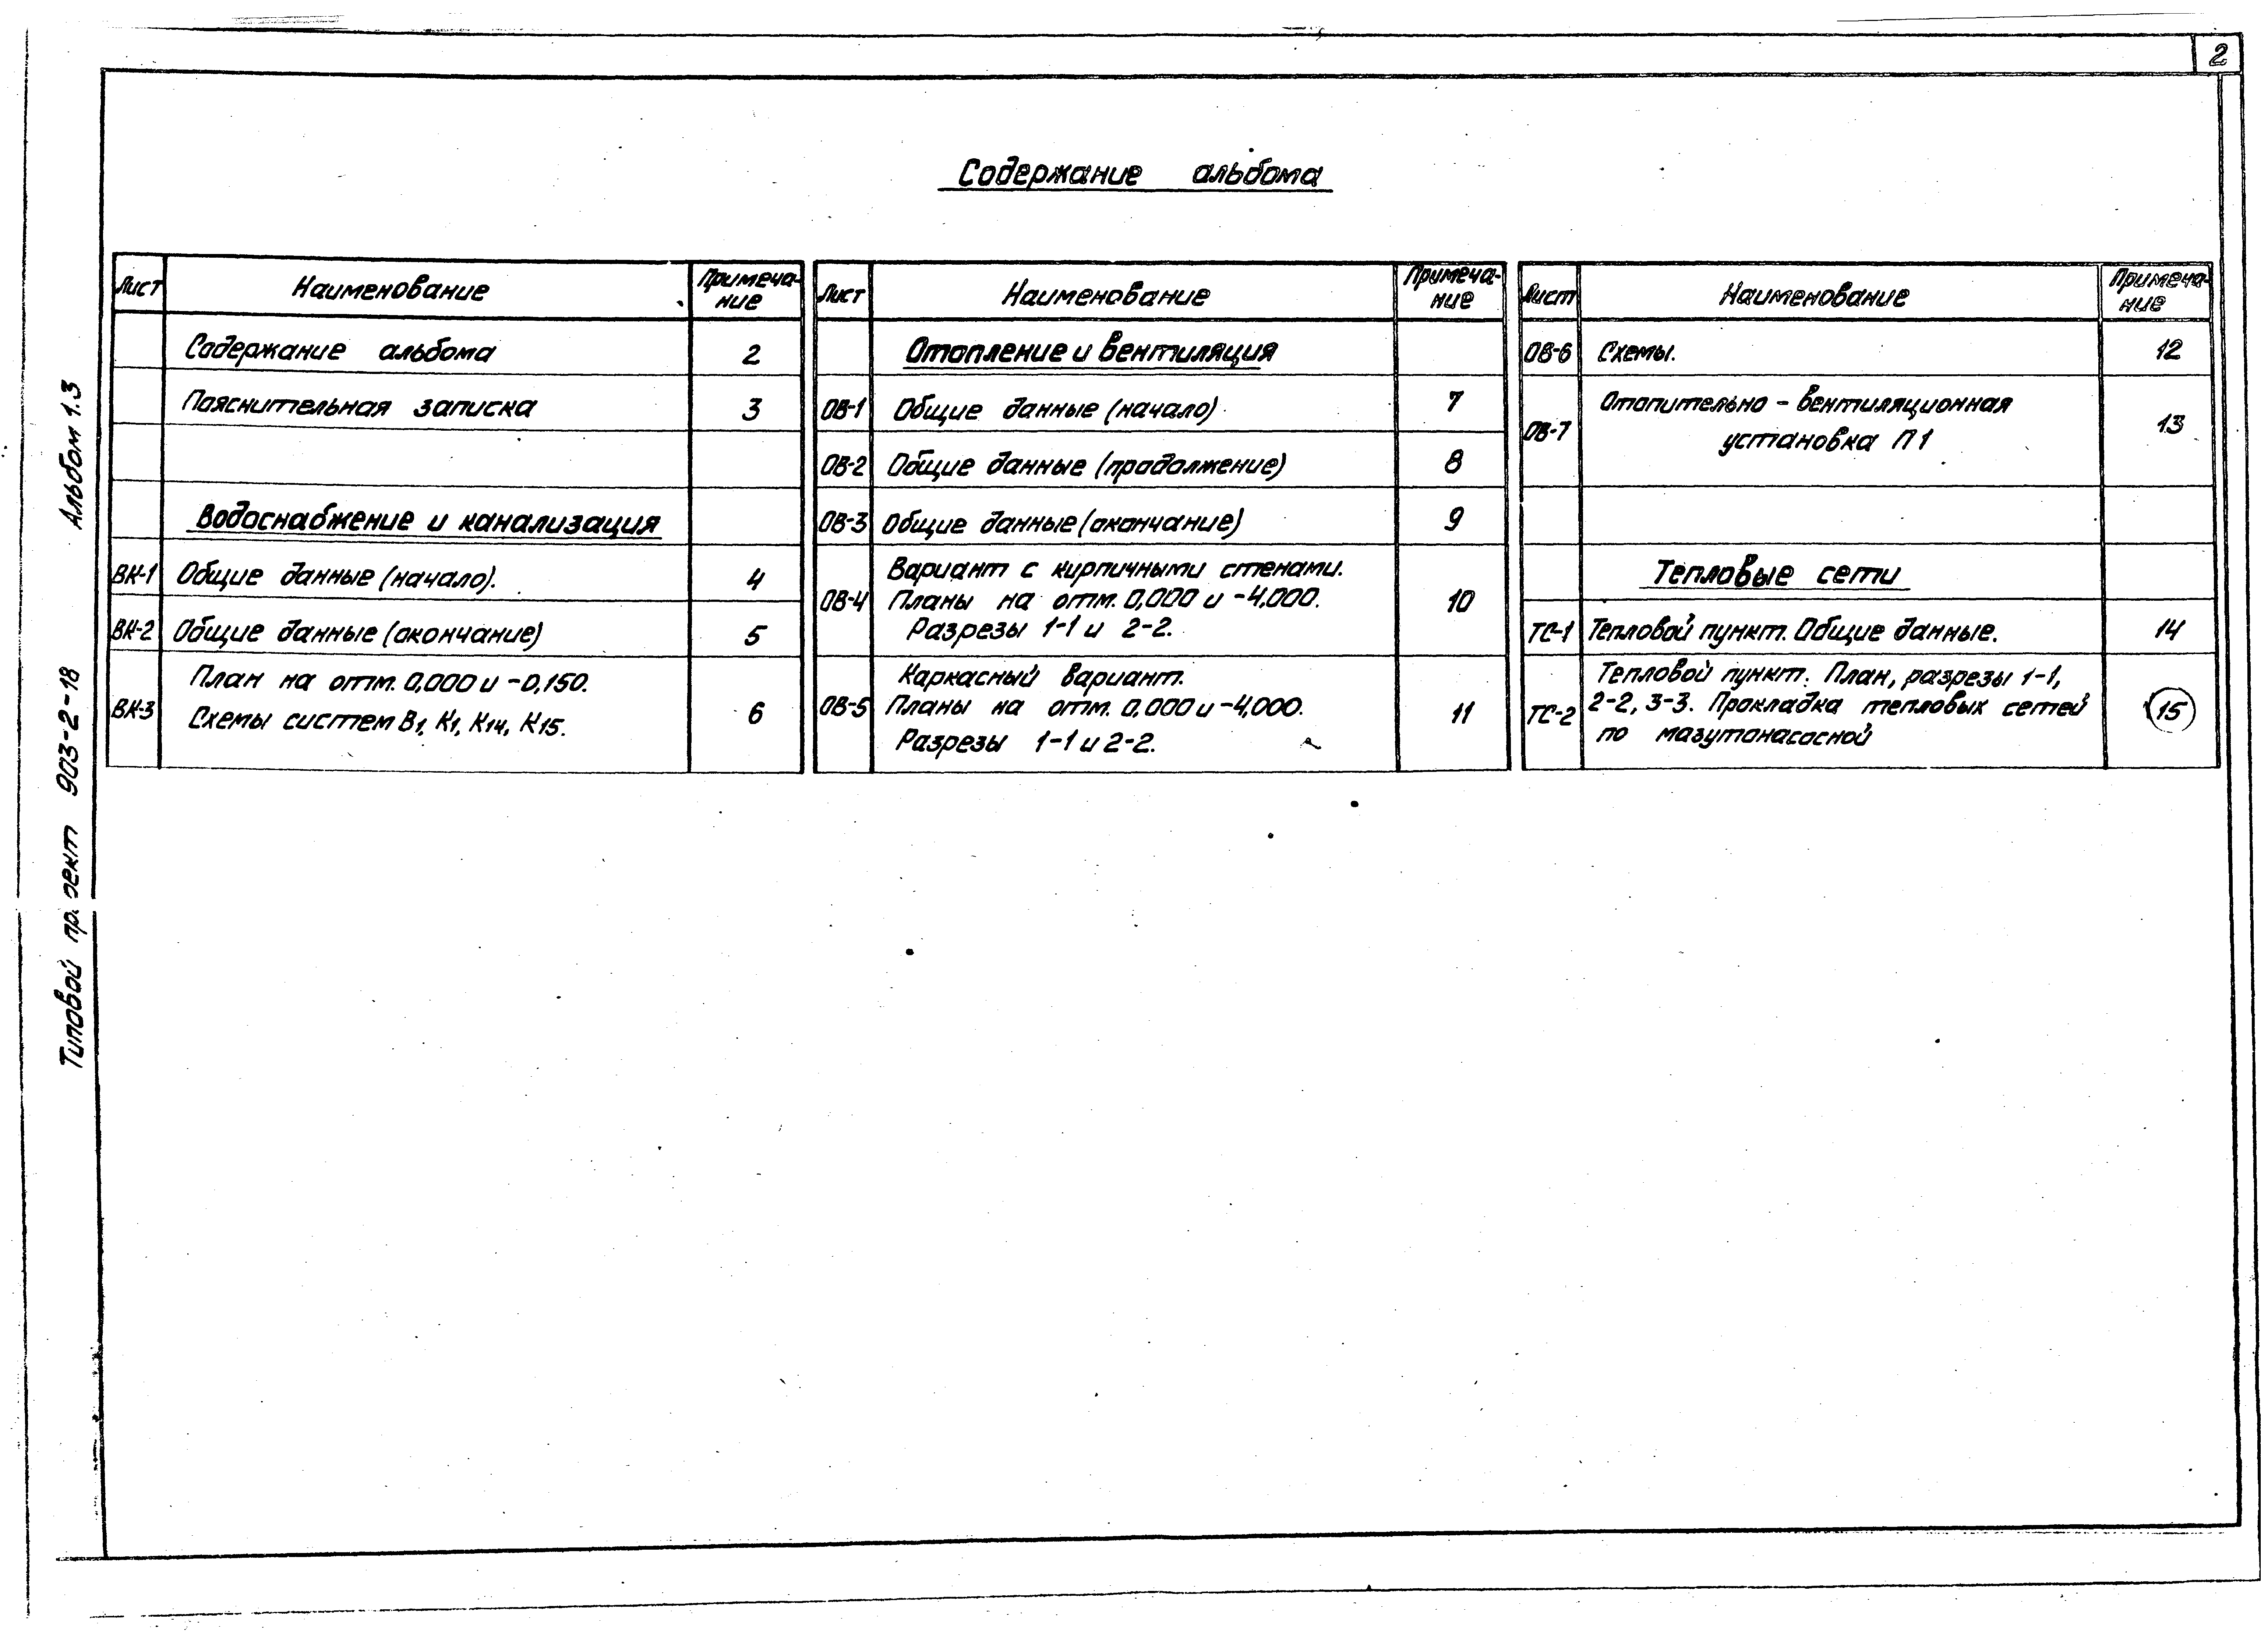 2
Содержание альбома
Лист Наименование Примеча-
ние
Содержание альбома 2
Пояснительная записка 3
Водоснабжение и канализация
ВК-1 Общие данные (начало). 4
ВК-2 Общие данные (окончание) 5
ВК-3 План на отм. 0,000 и -0,150.
Схемы систем В1, К1, К14, К15. 6
Лист Наименование Примеча-
ние
Отопление и вентиляция
ОВ-1 Общие данные (начало). 7
ОВ-2 Общие данные (продолжение) 8
ОВ-3 Общие данные (окончание) 9
Вариант с кирпичными стенами.
ОВ-4 Планы на отм. 0,000 и -4,000. 10
Разрезы 1-1 и 2-2.
Каркасный вариант.
ОВ-5 Планы на отм. 0,000 и -4,000. 11
Разрезы 1-1 и 2-2.
Лист Наименование Примеча-
ние
ОВ-6 Схемы. 12
ОВ-7 Отопительно - вентиляционная 13
установка П1
Тепловые сети
ТС-1 Тепловой пункт. Общие данные. 14
Тепловой пункт. План, разрезы 1-1,
ТС-2 2-2, 3-3. Прокладка тепловых сетей 15
по мазутонасосной
Типовой проект 903-2-18 Альбом 1.3